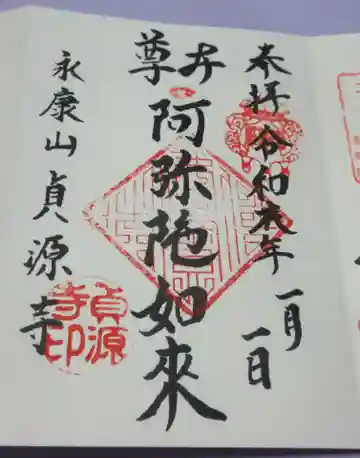 奉拝
令和六年
一月
一日
本尊
阿弥陀如來
永康山
貞源寺
貞源
寺印